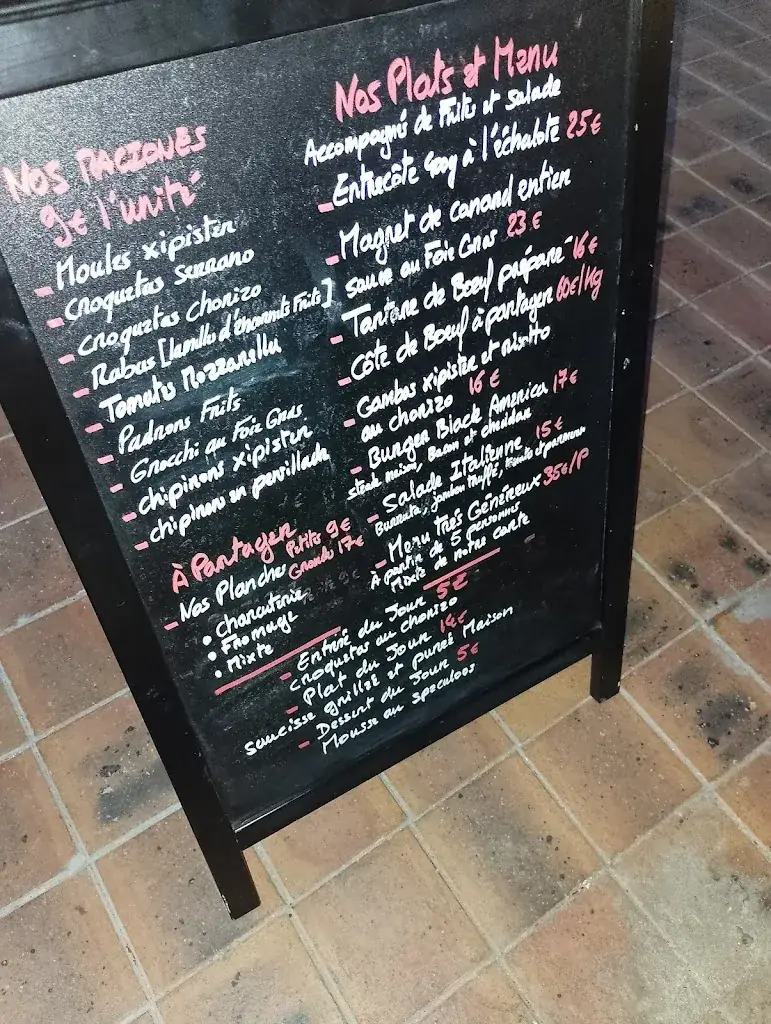 NOS RACIONES
9€ l'unité
- Moules xipister
- Croquetas Serrano
- Croquetas Chorizo
- Rabas [lamelles d'Encornets Frits]
- Tomates Mozzarella
- Padrons Frits
- Gnocchi au Foie Gras
- chipirons xipister
- chipirons en persillade
À Partager
- Nos Planches Petites 9€
Grandes 17€
• Charcuterie
• Fromage
• Mixte
Nos Plats et Menu
Accompagnés de Frites et Salade
- Entrecôte 400g à l'échalote 25€
- Magret de canard entier
sauce au Foie Gras 23€
- Tartare de Boeuf préparé 16€
- Côte de Boeuf à partager 60€/Kg
- Gambas xipister et risotto
au chorizo 16€
- Burger Black America 17€
steak maison, Bacon et cheddar
- Salade Italienne 15€
Burrata, jambon truffé, tomate et parmesan
- Menu Très Généreux 35€/P
À partir de 5 personnes
Mixte de notre carte
- Entrée du Jour 5€
Croquetas au chorizo
- Plat du Jour 14€
Saucisse grillée et purée Maison
- Dessert du Jour 5€
Mousse au speculoos